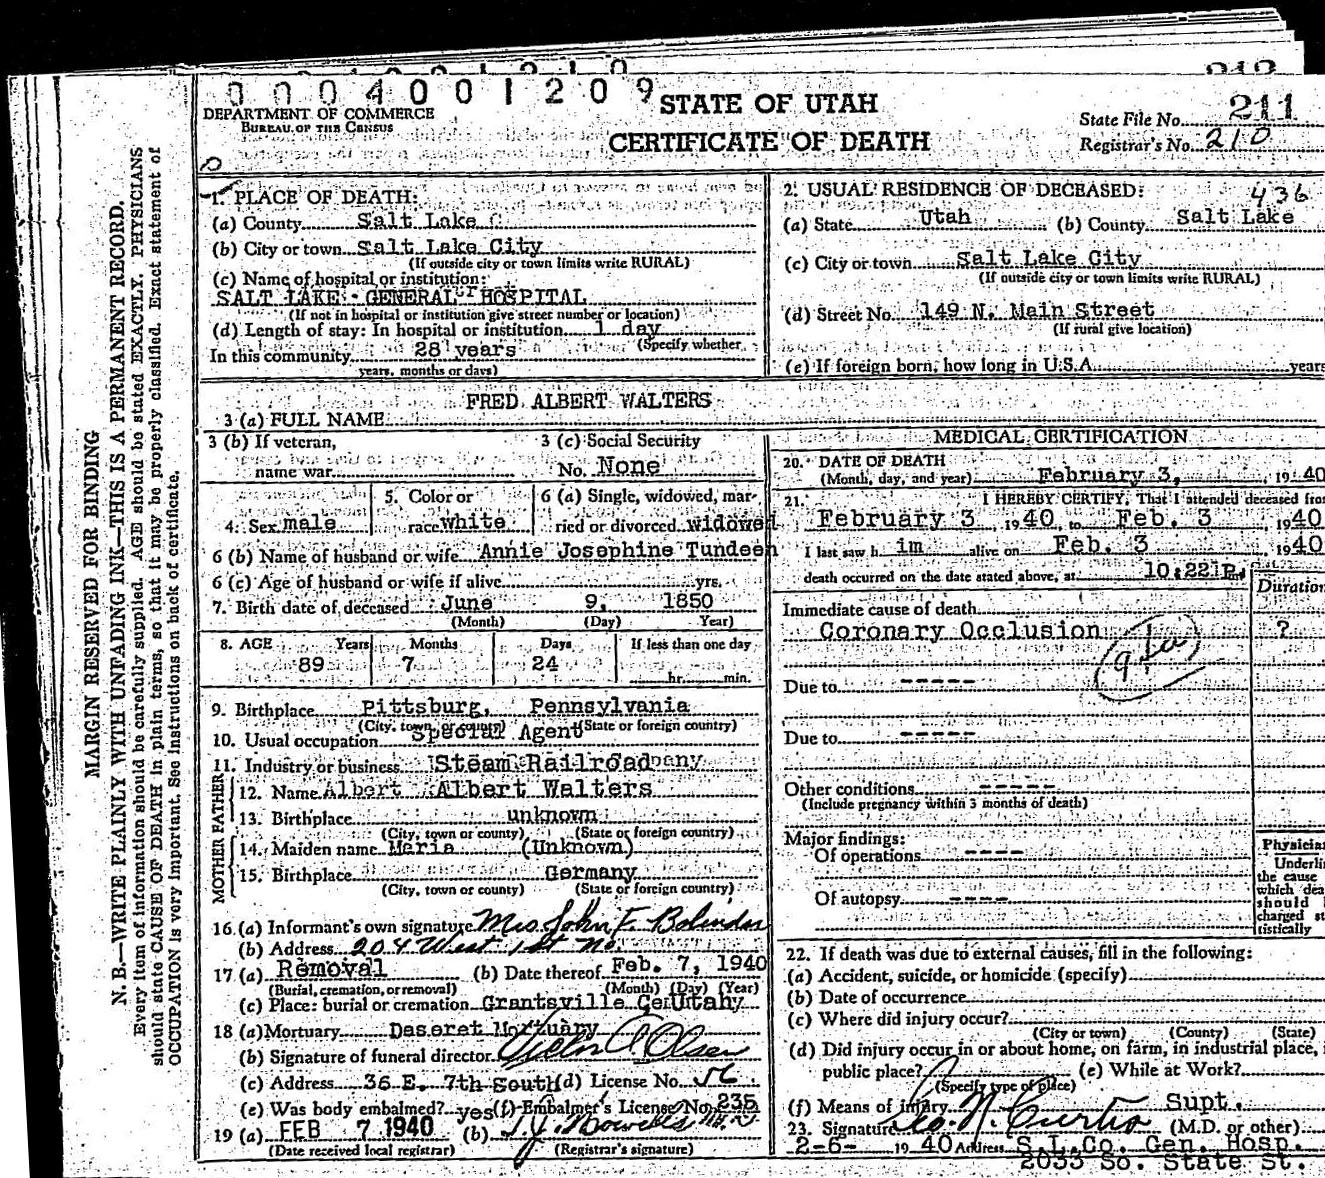 0004001209
212
DEPARTMENT OF COMMERCE
BUREAU OF THE CENSUS
STATE OF UTAH
CERTIFICATE OF DEATH
State File No. 211
Registrar's No. 210
MARGIN RESERVED FOR BINDING
N. B.—WRITE PLAINLY WITH UNFADING INK—THIS IS A PERMANENT RECORD.
Every item of information should be carefully supplied. AGE should be stated EXACTLY. PHYSICIANS
should state CAUSE OF DEATH in plain terms, so that it may be properly classified. Exact statement of
OCCUPATION is very important. See instructions on back of certificate.
1. PLACE OF DEATH:
(a) County Salt Lake
(b) City or town Salt Lake City
(If outside city or town limits write RURAL)
(c) Name of hospital or institution:
SALT LAKE - GENERAL HOSPITAL
(If not in hospital or institution give street number or location)
(d) Length of stay: In hospital or institution 1 day
(Specify whether
In this community 28 years
years, months or days)
2. USUAL RESIDENCE OF DECEASED: 436
(a) State Utah (b) County Salt Lake
(c) City or town Salt Lake City
(If outside city or town limits write RURAL)
(d) Street No. 149 N. Main Street
(If rural give location)
(e) If foreign born, how long in U.S.A. years
3 (a) FULL NAME FRED ALBERT WALTERS
3 (b) If veteran,
name war
3 (c) Social Security
No. None
4. Sex male
5. Color or
race white
6 (a) Single, widowed, mar-
ried or divorced widowed
6 (b) Name of husband or wife Annie Josephine Tundeen
6 (c) Age of husband or wife if alive yrs.
7. Birth date of deceased June 9, 1850
(Month) (Day) Year)
8. AGE Years Months Days If less than one day
89 7 24
hr. min.
9. Birthplace Pittsburg, Pennsylvania
(City, town or county) (State or foreign country)
10. Usual occupation Special Agent
11. Industry or business Steam Railroad
FATHER
12. Name Albert Albert Walters
13. Birthplace unknown
(City, town or county) (State or foreign country)
MOTHER
14. Maiden name Maria (Unknown)
15. Birthplace Germany
(City, town or county) (State or foreign country)
16 (a) Informant's own signature Mrs John F. Bolinder
(b) Address 204 West 1st No.
17 (a) Removal (b) Date thereof Feb. 7, 1940
(Burial, cremation, or removal) (Month) (Day) (Year)
(c) Place: burial or cremation Grantsville
18 (a) Mortuary Deseret Mortuary
(b) Signature of funeral director Olsen
(c) Address 36 E. 7th South (d) License No.
(e) Was body embalmed? yes (f) Embalmer's License No. 235
19 (a) FEB 7 1940 (b)
(Date received local registrar) (Registrar's signature)
MEDICAL CERTIFICATION
20. DATE OF DEATH
(Month, day, and year) February 3, 1940
21. I HEREBY CERTIFY, That I attended deceased from
February 3, 1940, to Feb. 3 1940
I last saw h im alive on Feb. 3 1940
death occurred on the date stated above, at 10:22P.
Duration
Immediate cause of death
Coronary Occlusion ?
Due to -----
Due to -----
Other conditions -----
(Include pregnancy within 3 months of death)
Major findings:
Of operations ----
Of autopsy ----
Physician
Underline
the cause
which death
should
charged
tistically
22. If death was due to external causes, fill in the following:
(a) Accident, suicide, or homicide (specify)
(b) Date of occurrence
(c) Where did injury occur?
(City or town) (County) (State)
(d) Did injury occur in or about home, on farm, in industrial place, i
public place? (e) While at Work?
(Specify type of place)
(f) Means of injury
23. Signature N. Curtis Supt. (M.D. or other)
2-6- 1940 Address S.L.Co. Gen. Hosp.
2033 So. State St.